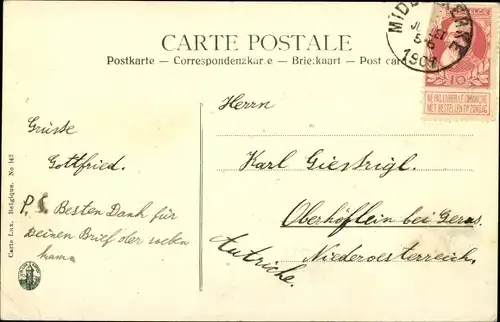 CARTE POSTALE
Postkarte — Correspondenzkarte — Briefkaart — Post card
MIDDELKERKE
5-6
10
NE PAS LIVRER LE DIMANCHE
NIET BESTELLEN OP ZONDAG
Herrn
Karl Giestrigl.
Oberhöflein bei Geras.
Niederoesterreich,
Autriche.
Grüsse
Gottfried.
P. S. Besten Dank für
Deinen Brief der soeben
kam
Carte Lux. Belgique. No 142